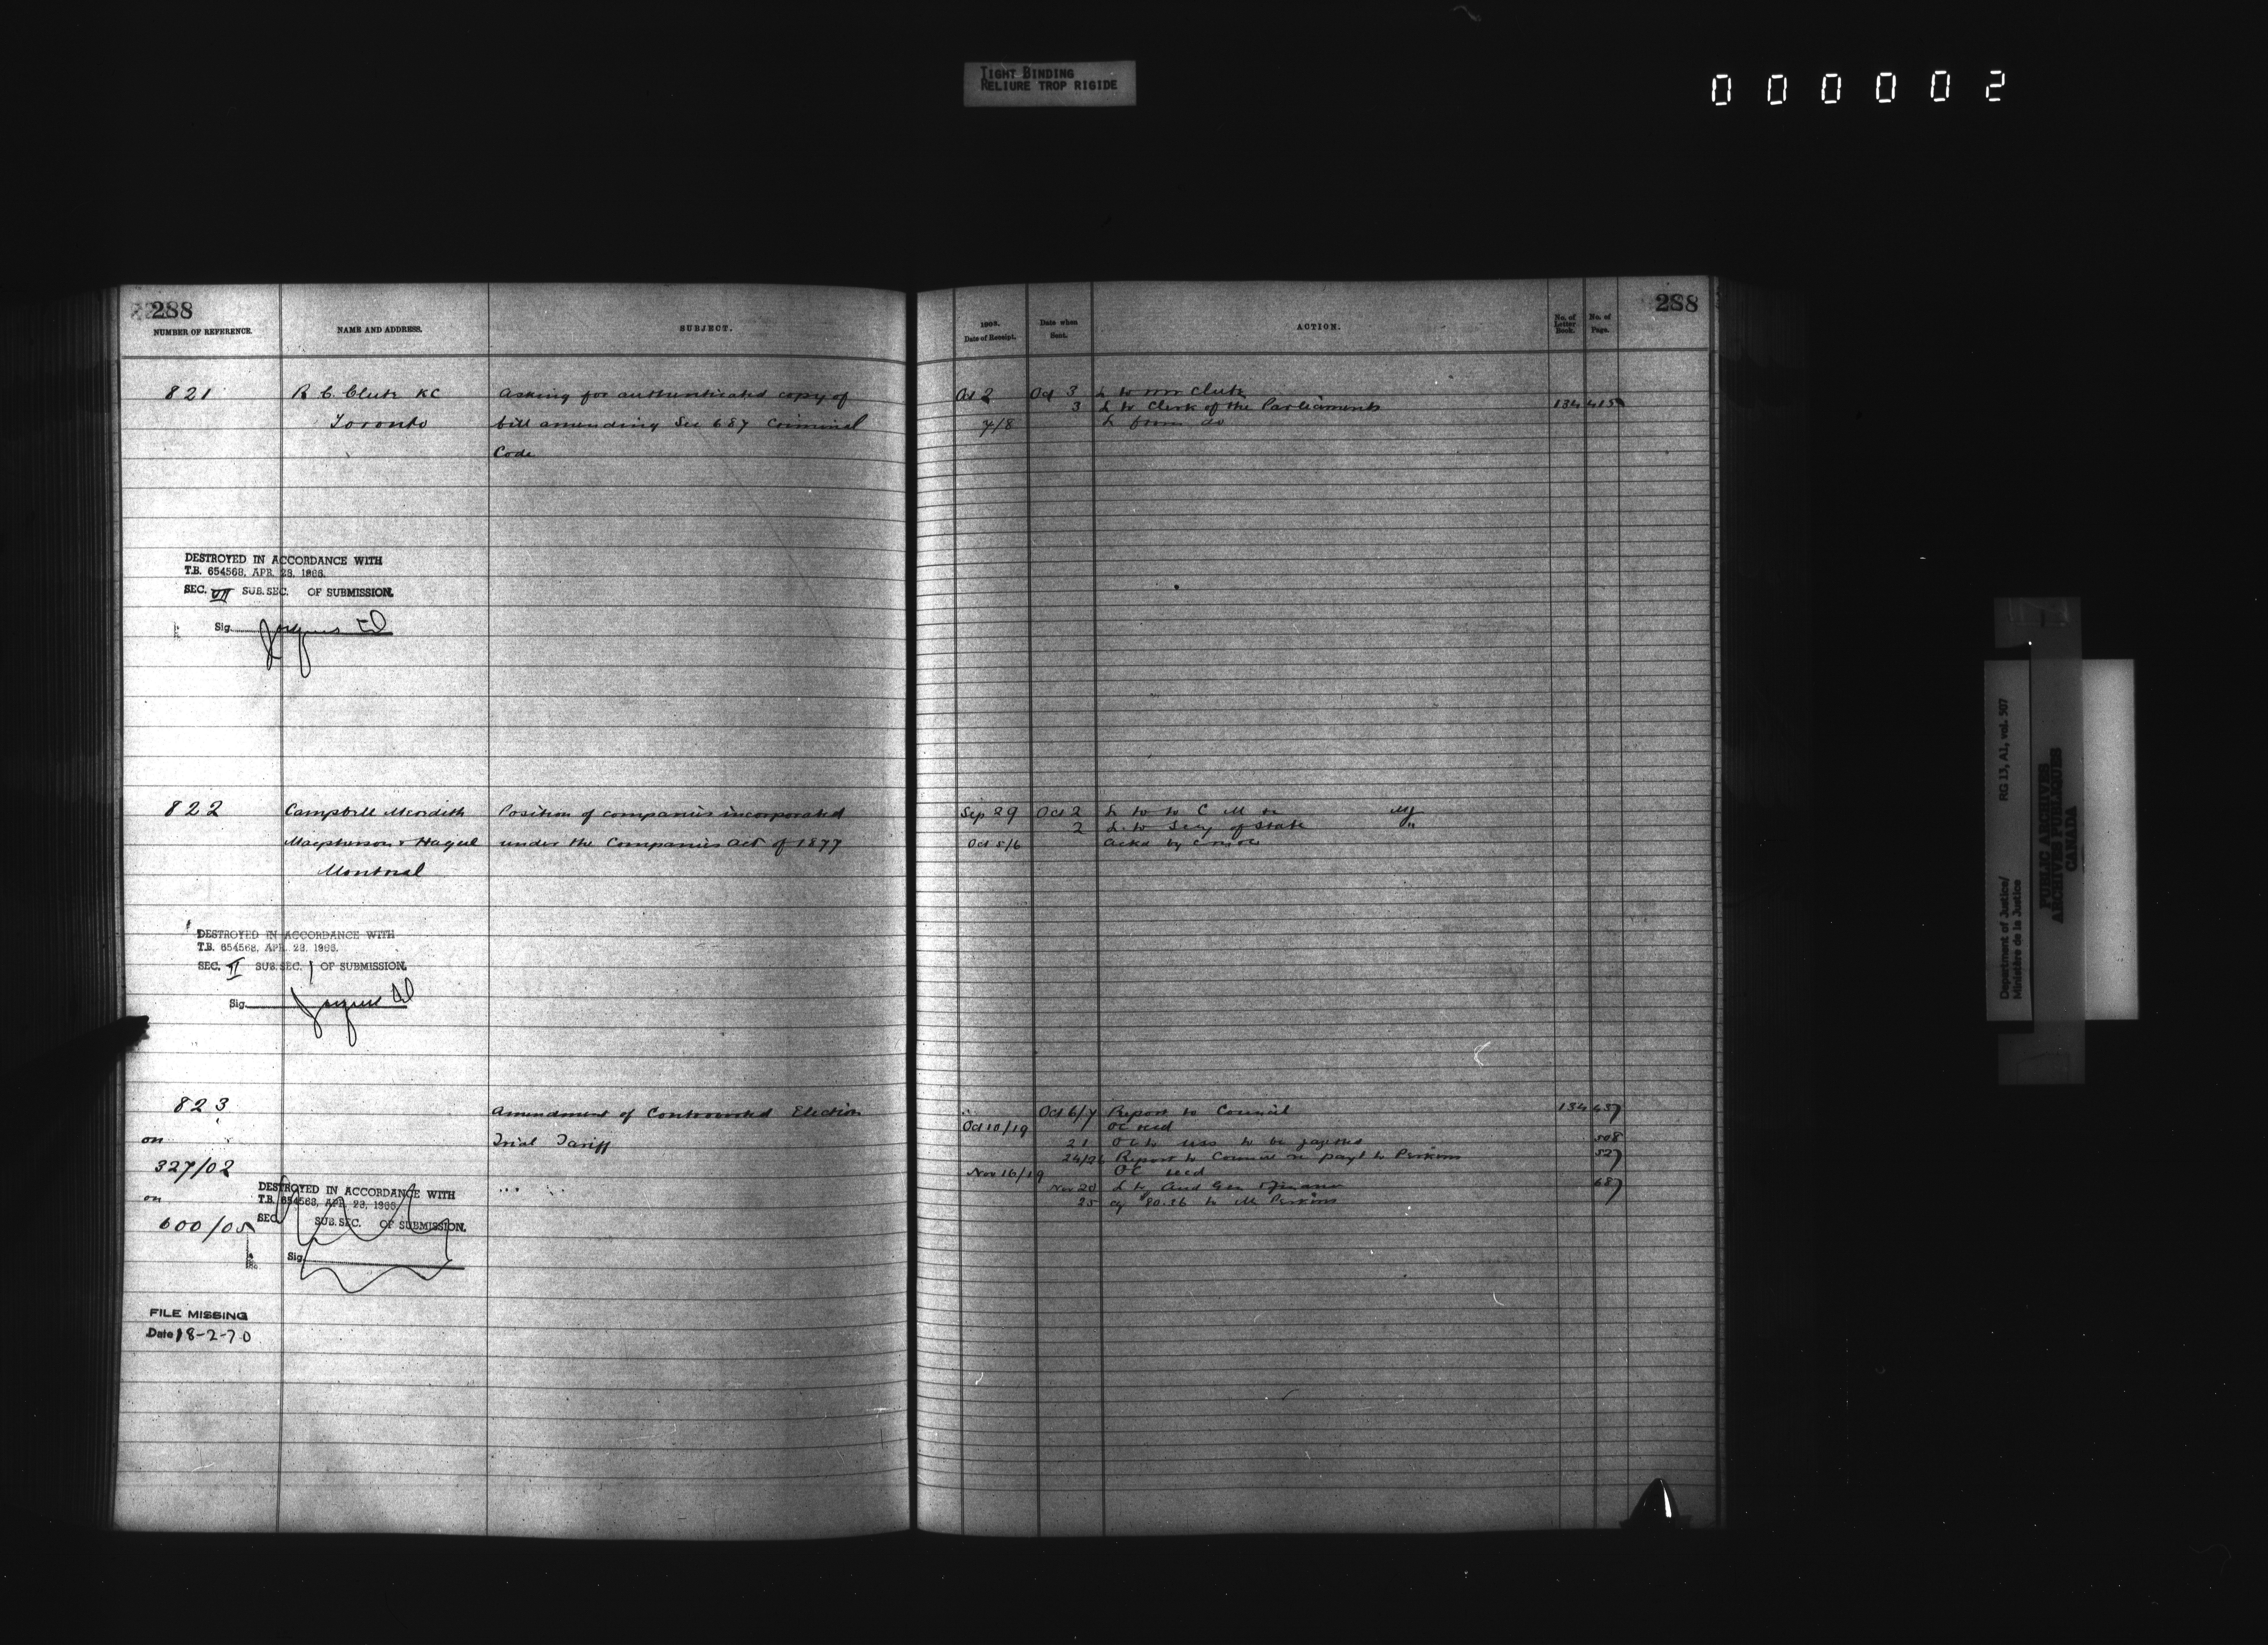 TIGHT BINDING
RELIURE TROP RIGIDE
000002
288
NUMBER OF REFERENCE.
NAME AND ADDRESS.
SUBJECT.
821
R C Clute KC
Asking for authenticated copy of
Toronto
bill amending Sec 687 Criminal
Code
DESTROYED IN ACCORDANCE WITH
T.B. 654568, APR. 28, 1966.
SEC. VII SUB. SEC. OF SUBMISSION.
Sig.
822
Campbell Meredith
Position of companies incorporated
Macpherson & Hague
under the Companies Act of 1877
Montreal
DESTROYED IN ACCORDANCE WITH
T.B. 654568, APR. 28, 1966.
SEC. II SUB. SEC. 1 OF SUBMISSION.
Sig.
823
Amendment of Controverted Election
on
Trial Tariff
327/02
on
600/05
DESTROYED IN ACCORDANCE WITH
T.B. 654568, APR. 28, 1966.
SEC. SUB. SEC. OF SUBMISSION.
Sig.
FILE MISSING
Date 18-2-70
288
1905.
Date of Receipt.
Date when
Sent.
ACTION.
No. of
Letter
Book.
No. of
Page.
Oct 2 Oct 3 L to Clute
3 L to Clerk of the Parliaments 134 415
7/8 L from do
Sep 29 Oct 2 L to C M
2 L to Secy of State "
Oct 5/6 Ackd by
Oct 6/7 Report to Council 134 437
Oct 10/19 OC recd
21 OC to be 508
24/26 Report to Council payt to Perkins 527
Nov 16/19 OC recd
Nov 20 L to Aud Gen & Finance 687
25 80.36 to M Perkins
Department of Justice/
Ministère de la Justice
RG 13, A1, vol. 507
PUBLIC ARCHIVES
ARCHIVES PUBLIQUES
CANADA